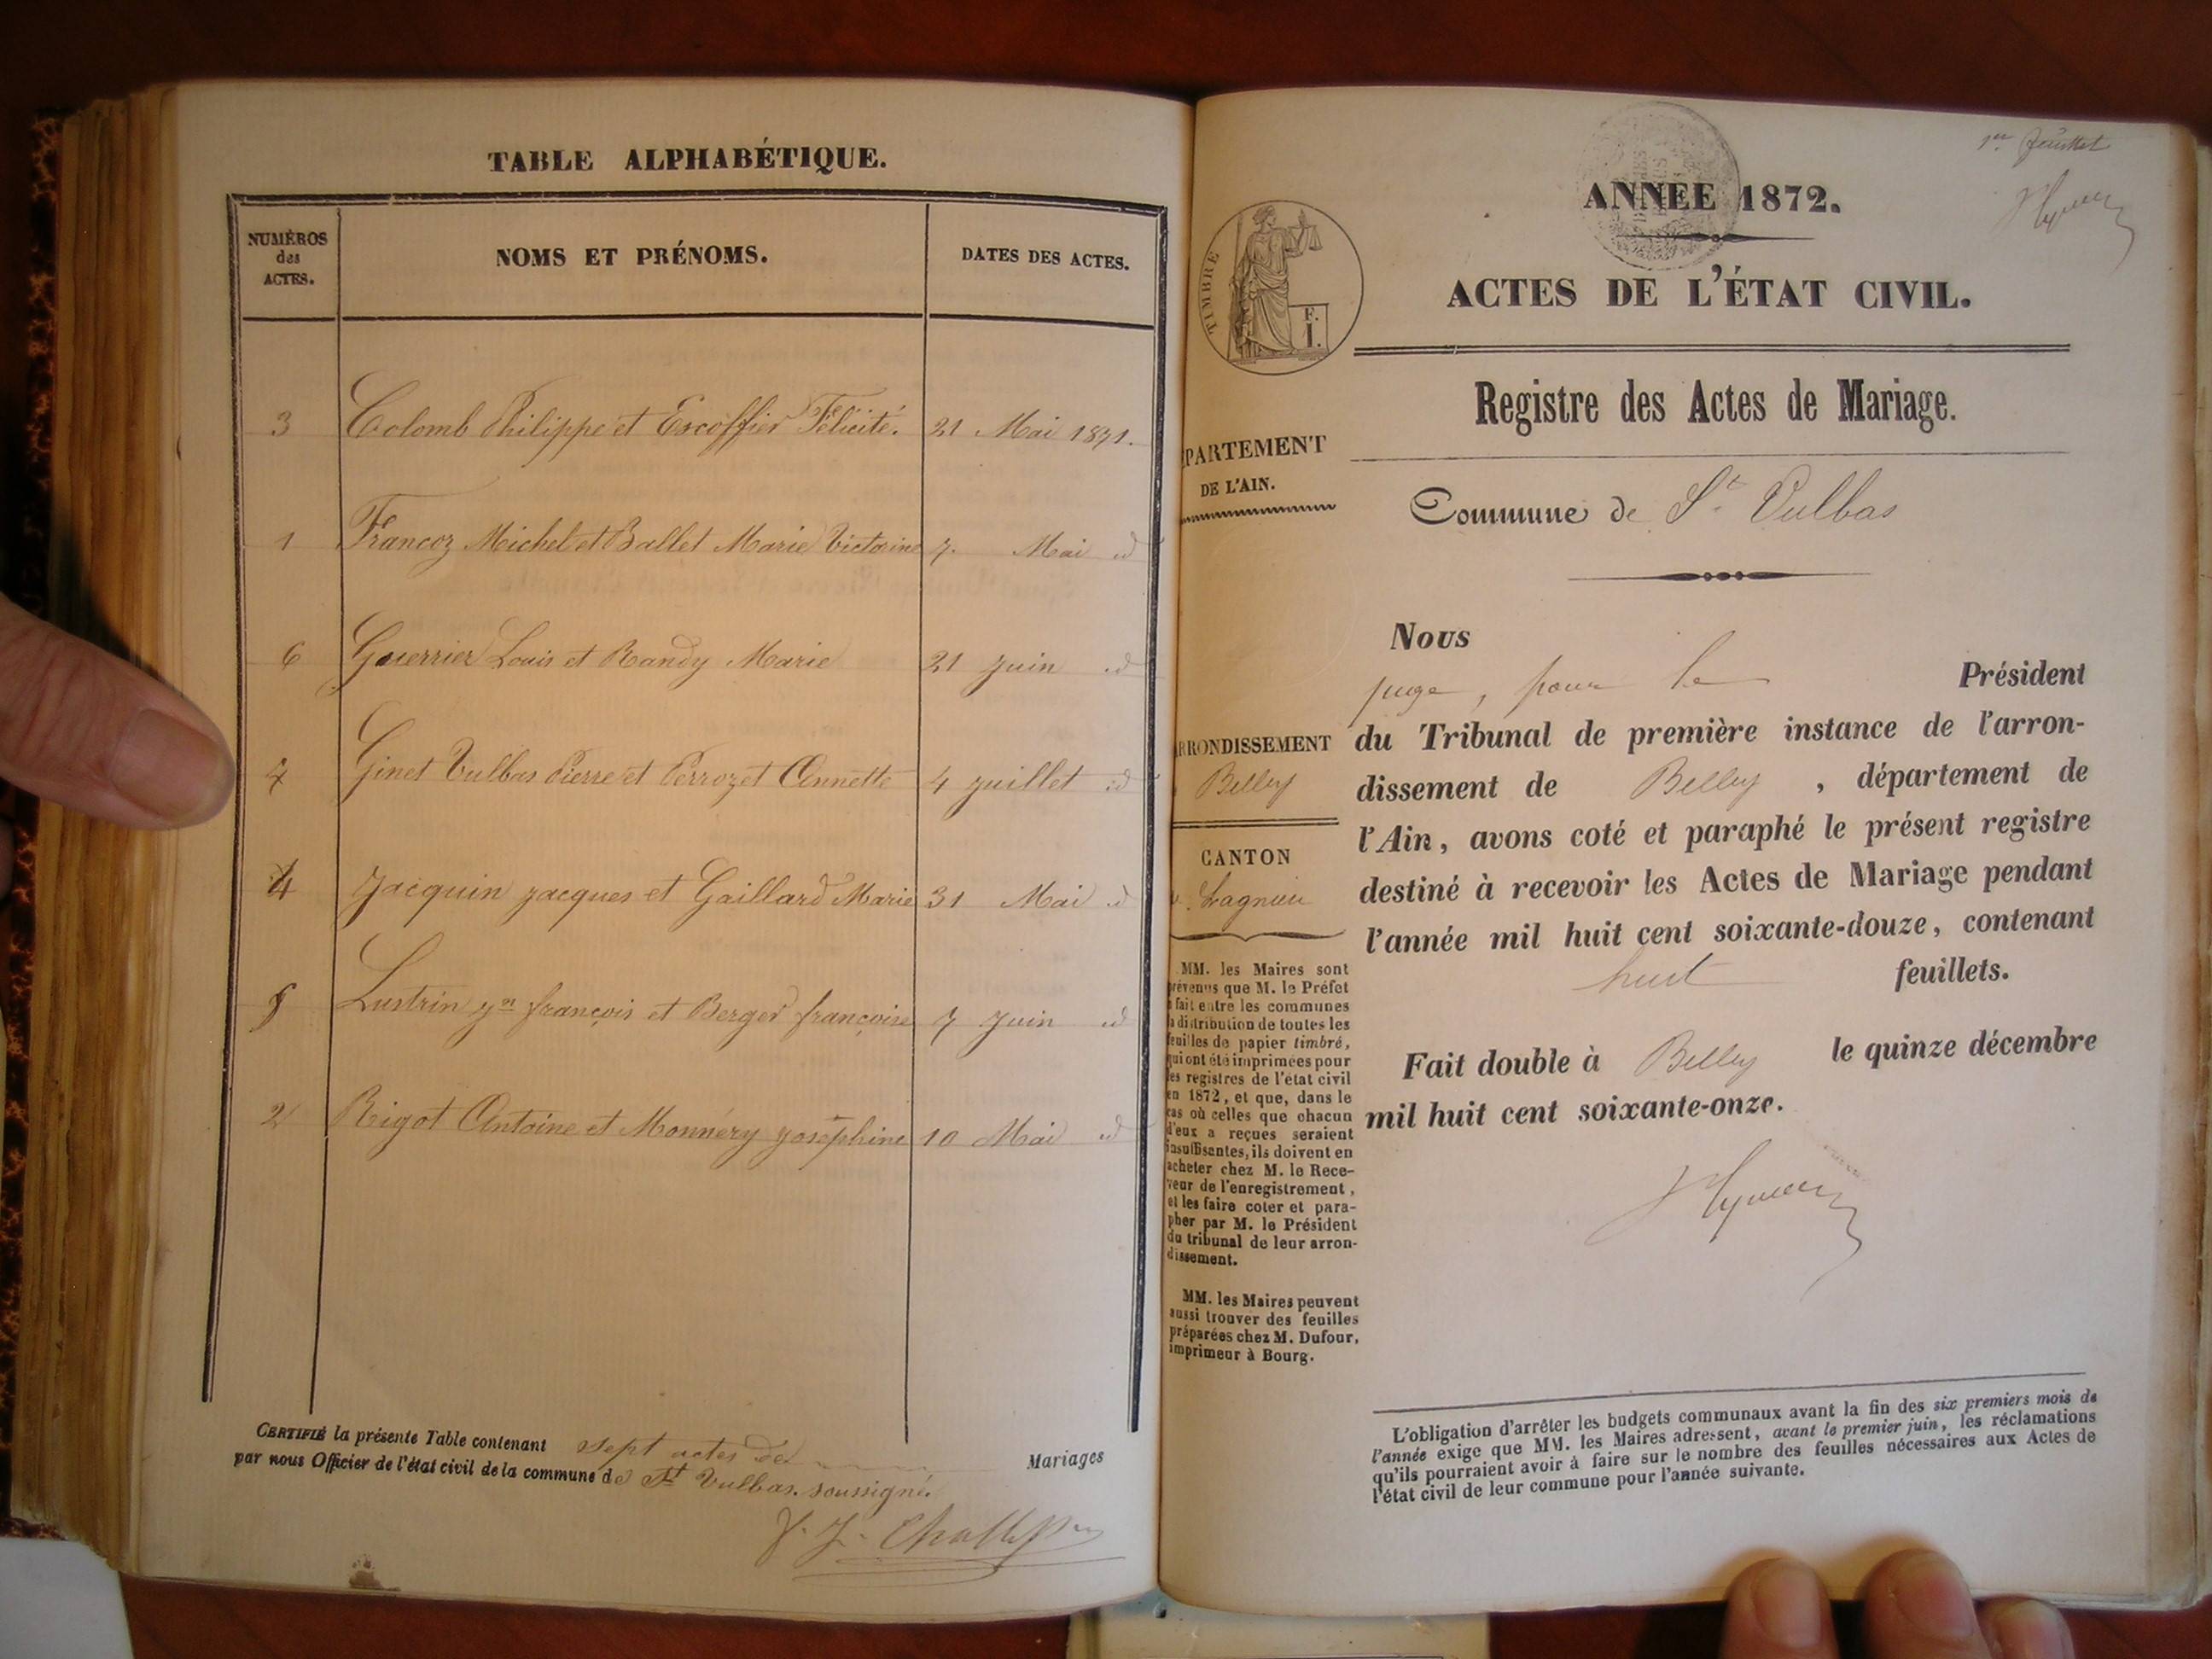 TABLE ALPHABÉTIQUE.
NUMÉROS
des
ACTES.
NOMS ET PRÉNOMS.
DATES DES ACTES.
3 Colomb Philippe et Escoffier Félicité. 21 Mai 1871.
1 Francoz Michel et Ballet Marie Victorine 7. Mai id
6 Guerrier Louis et Randy Marie 21 Juin id
7 Ginet Vulbas Pierre et Perrozet Annette 4 Juillet id
4 Jacquin Jacques et Gaillard Marie 31 Mai id
5 Lustrin Jn François et Berger françoise 7 Juin id
2 Rigot Antoine et Monnéry Joséphine 10 Mai id
CERTIFIÉ la présente Table contenant sept actes de Mariages
par nous Officier de l'état civil de la commune de St Vulbas. soussigné.
1er feuillet
ANNEE 1872.
TIMBRE
F.
1.
ACTES DE L'ÉTAT CIVIL.
Registre des Actes de Mariage.
PARTEMENT
DE L'AIN.
Commune de St. Vulbas
Nous
juge, pour le Président
du Tribunal de première instance de l'arron-
dissement de Belley, département de
l'Ain, avons coté et paraphé le présent registre
destiné à recevoir les Actes de Mariage pendant
l'année mil huit cent soixante-douze, contenant
huit feuillets.
Fait double à Belley le quinze décembre
mil huit cent soixante-onze.
RRONDISSEMENT
Belley
CANTON
Lagnieu
MM. les Maires sont
révenus que M. le Préfet
fait entre les communes
a distribution de toutes les
feuilles de papier timbré,
qui ont été imprimées pour
les registres de l'état civil
en 1872, et que, dans le
cas où celles que chacun
d'eux a reçues seraient
insuffisantes, ils doivent en
acheter chez M. le Rece-
veur de l'enregistrement,
et les faire coter et para-
pher par M. le Président
du tribunal de leur arron-
dissement.
MM. les Maires peuvent
aussi trouver des feuilles
préparées chez M. Dufour,
imprimeur à Bourg.
L'obligation d'arrêter les budgets communaux avant la fin des six premiers mois de
l'année exige que MM. les Maires adressent, avant le premier juin, les réclamations
qu'ils pourraient avoir à faire sur le nombre des feuilles nécessaires aux Actes de
l'état civil de leur commune pour l'année suivante.